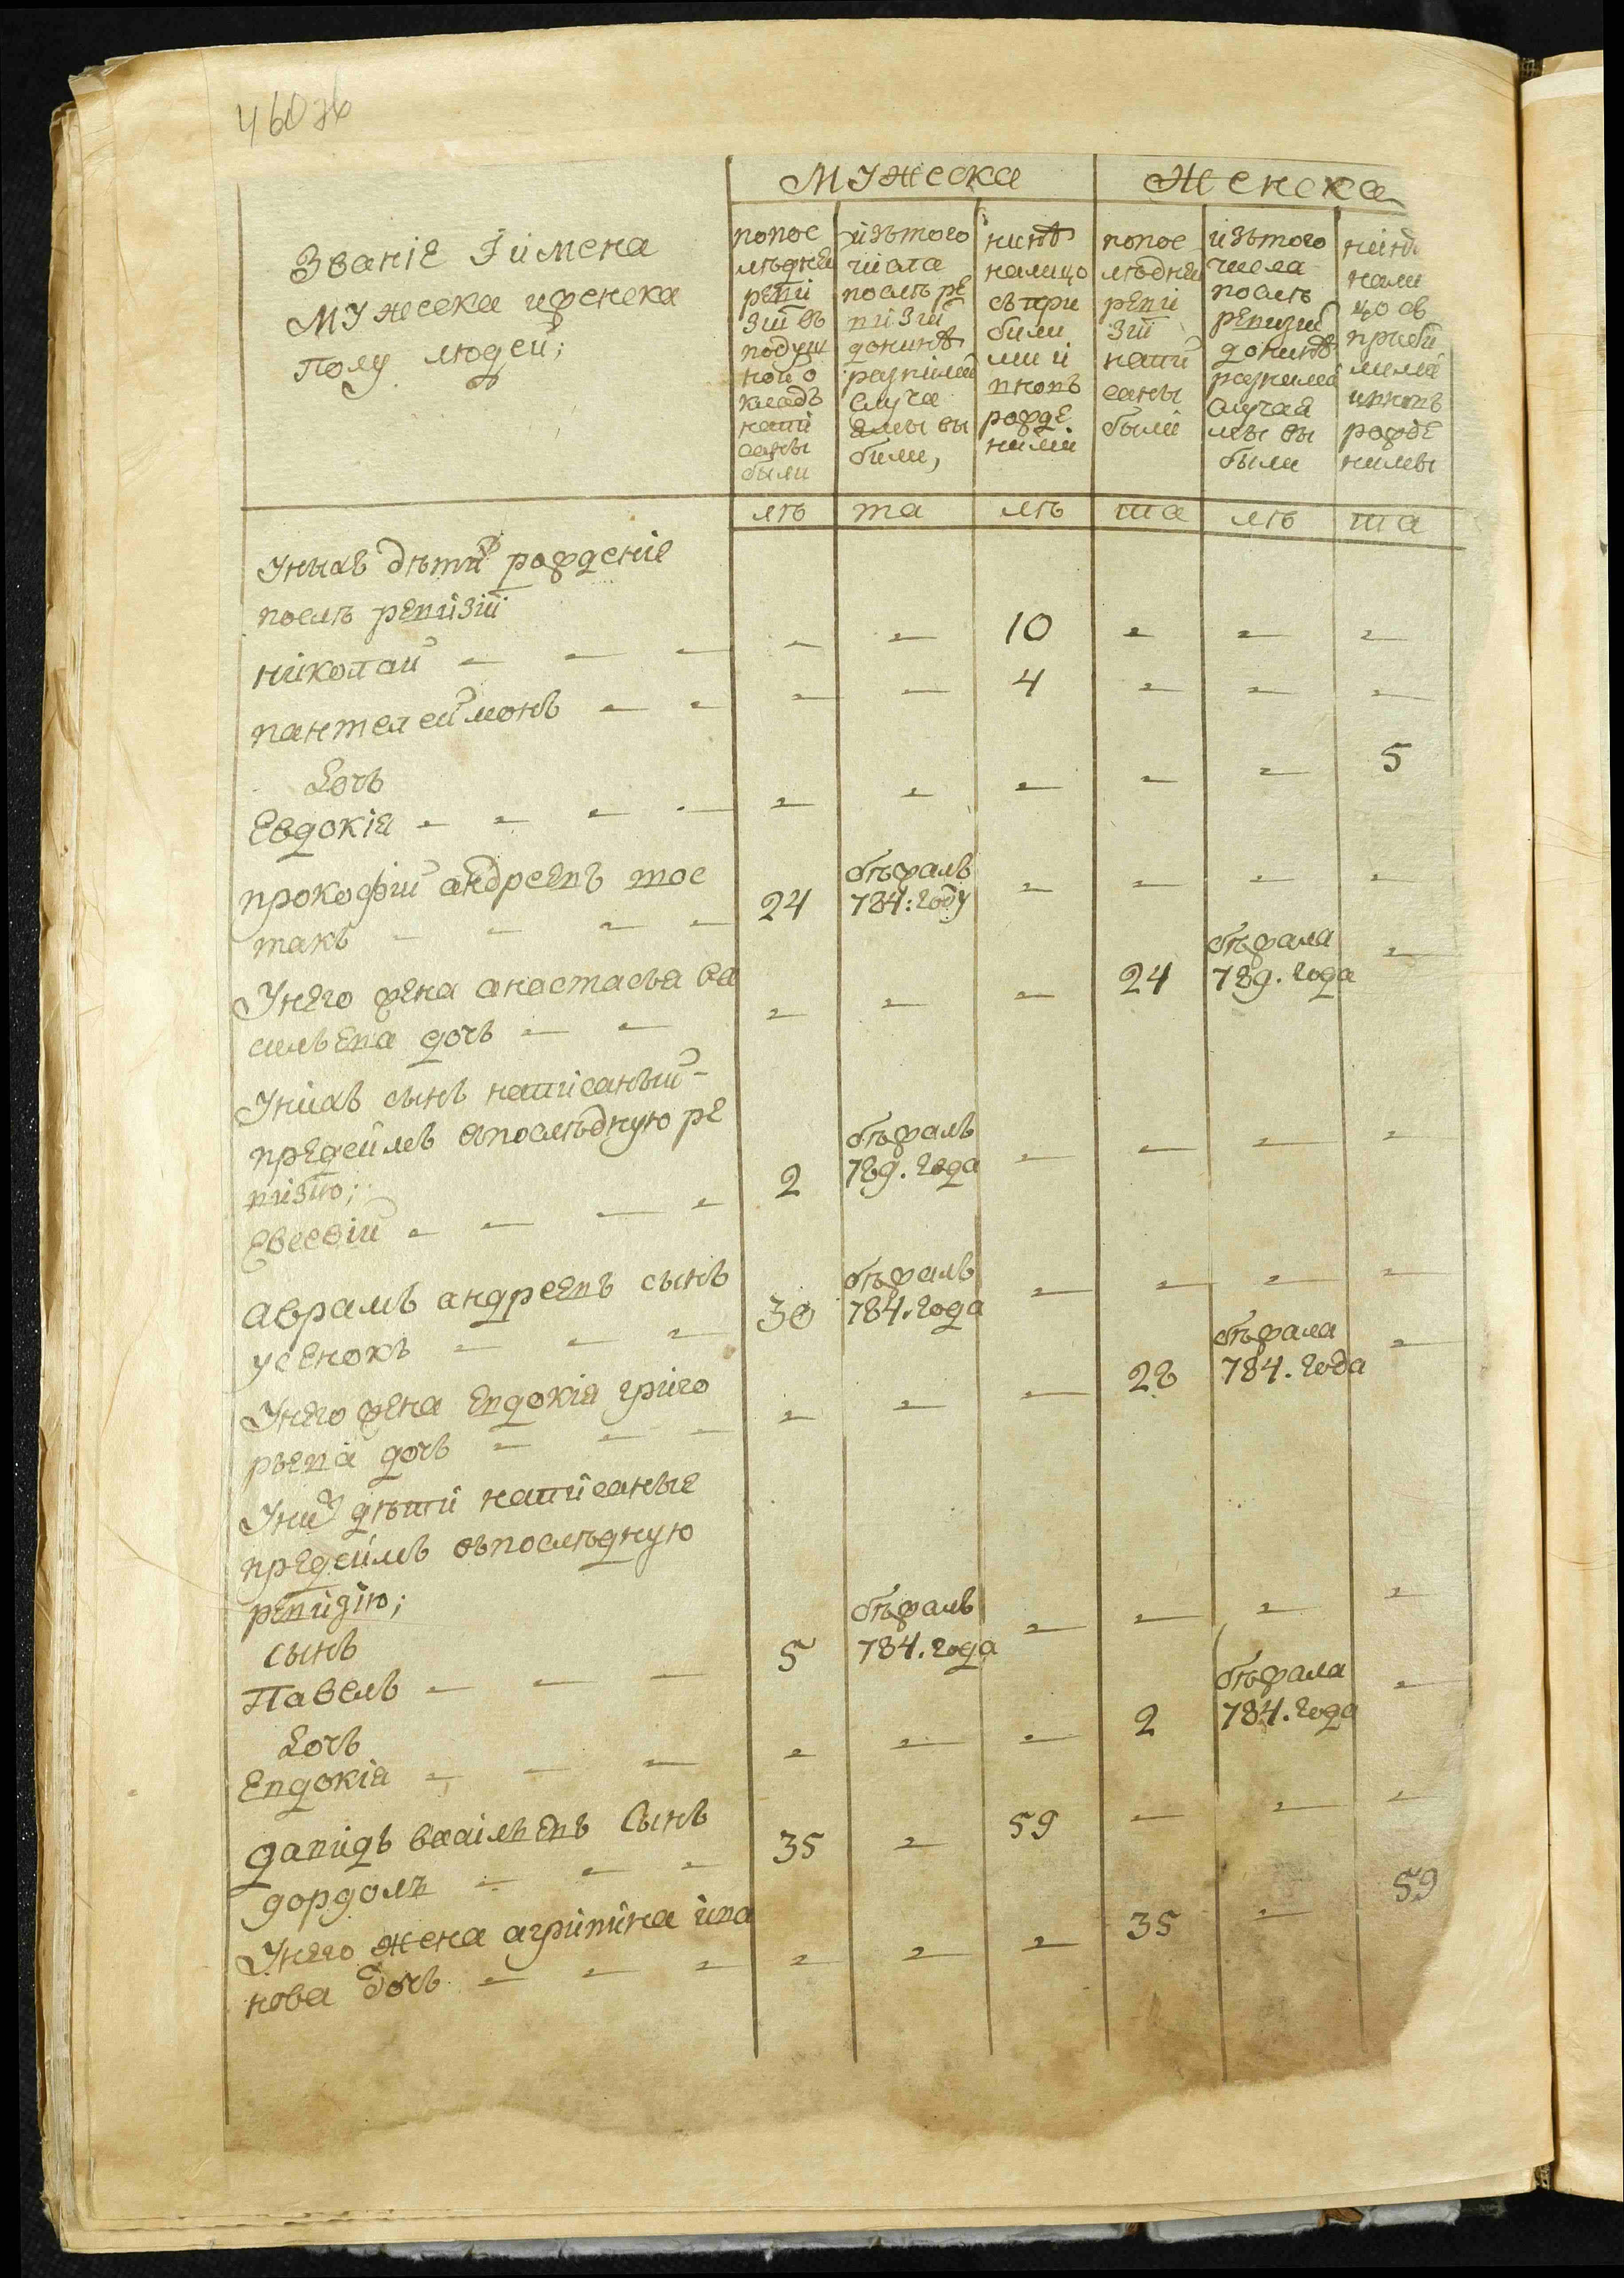 460 об
Мужеска
Женска
Званіе Ӏ имена
Мужеска и женска
Полу людей;
попос
лѣдней
реви
зіи въ
подуш
ной о
кладъ
напи
саны
были
изътого
числа
послѣ ре
визіи
донинѣ
разними
случа
ямы вы
были,
нинѣ
налицо
съ при
били
ми и
вновь
рожде
ними
попос
лѣдней
реви
зіи
напи
саны
были
изътого
числа
послѣ
ревизии
донинѣ
разними
случая
мы вы
были
нинѣ
нали
цо съ
приби
лыми
и вновь
рожде
нимы
лѣ та лѣ та лѣ та
Унихъ дѣти рожденіе
послѣ ревизіи
николай - - - - - 10 - - -
пантелеймонъ - - - - 4 - - -
Дочь
Евдокія - - - - - - - - - 5
прокофій андреевъ тос
такъ - - - - 24 бѣжалъ 784: году - - - -
Унего жена анастасья ва
сильева дочь - - - - - 24 бѣжала 789. года -
Унихъ сынъ написаный -
предсимъ впослѣдную ре
визію;
Евсевій - - - - 2 бѣжалъ 789. года - - - -
аврамъ андреевъ сынъ
усенокъ - - - 30 бѣжалъ 784. года - - - -
Унего жена Евдокія григо
рьева дочь - - - - - - 28 бѣжала 784. года -
Унихъ дѣти написаные
предсимъ въпослѣдную
ревизію;
сынъ
Павелъ - - - 5 бѣжалъ 784. года - - - -
Дочь
Евдокія - - - - - - 2 бѣжала 784. года -
давидъ васильевъ Сынъ
дордоль - - - 35 - 59 - - -
Унего жена агрипина ива
нова дочь - - - - - - 35 - 59